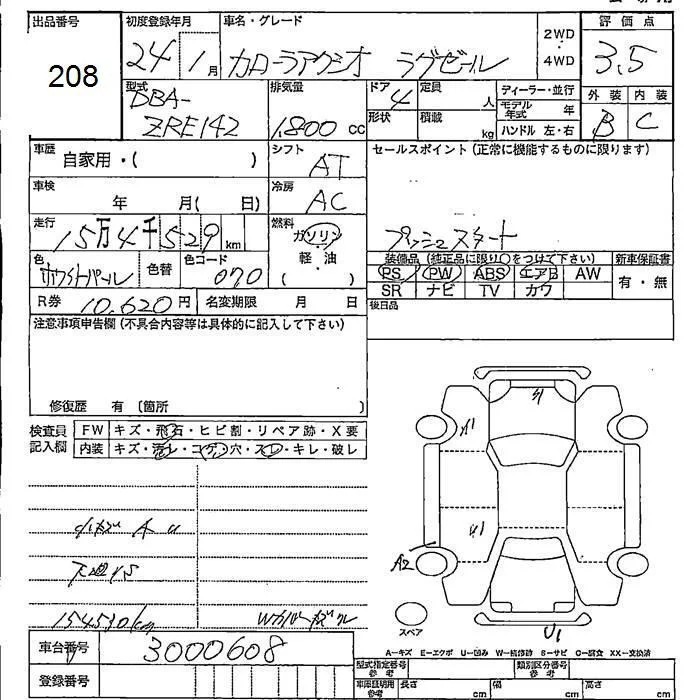 出品番号
208
初度登録年月
24 1月
車名・グレード
カローラアクシオ ラグゼール
2WD
・
4WD
評価点
3,5
外装 内装
B C
型式
DBA-
ZRE142
排気量
1,800 cc
ドア
4
定員
人
形状
積載
kg
ディーラー・並行
モデル年式 年
ハンドル 左・右
車歴
自家用・( )
シフト
AT
セールスポイント(正常に機能するものに限ります)
プッシュスタート
車検
年 月( 日)
冷房
AC
走行
15万4千529km
燃料
ガソリン
・
軽・油
( )
色
ホワイトパール
色替
色コード
070
装備品 (純正品に限り〇をつけて下さい)
PS PW ABS エアB AW
SR ナビ TV カワ
新車保証書
有・無
R券 10,620円
名変期限 月 日
後日品
注意事項申告欄(不具合内容等は具体的に記入して下さい)
修復歴 有 〔箇所 〕
検査員記入欄
FW キズ・飛石・ヒビ割・リペア跡・X要
内装 キズ・汚レ・コゲ穴・スレ・キレ・破レ
小キズ A U
下廻りS
154530km
Wカバーキズワレ
A1
U1
A2
U1
スペア
A-キズ E-エクボ U-凹み W-補修跡 S-サビ C-腐食 XX-交換済
車台番号
3000608
登録番号
型式指定番号
参考
類別区分番号
参考
車庫証明用
参考
長さ cm
幅 cm
高さ cm